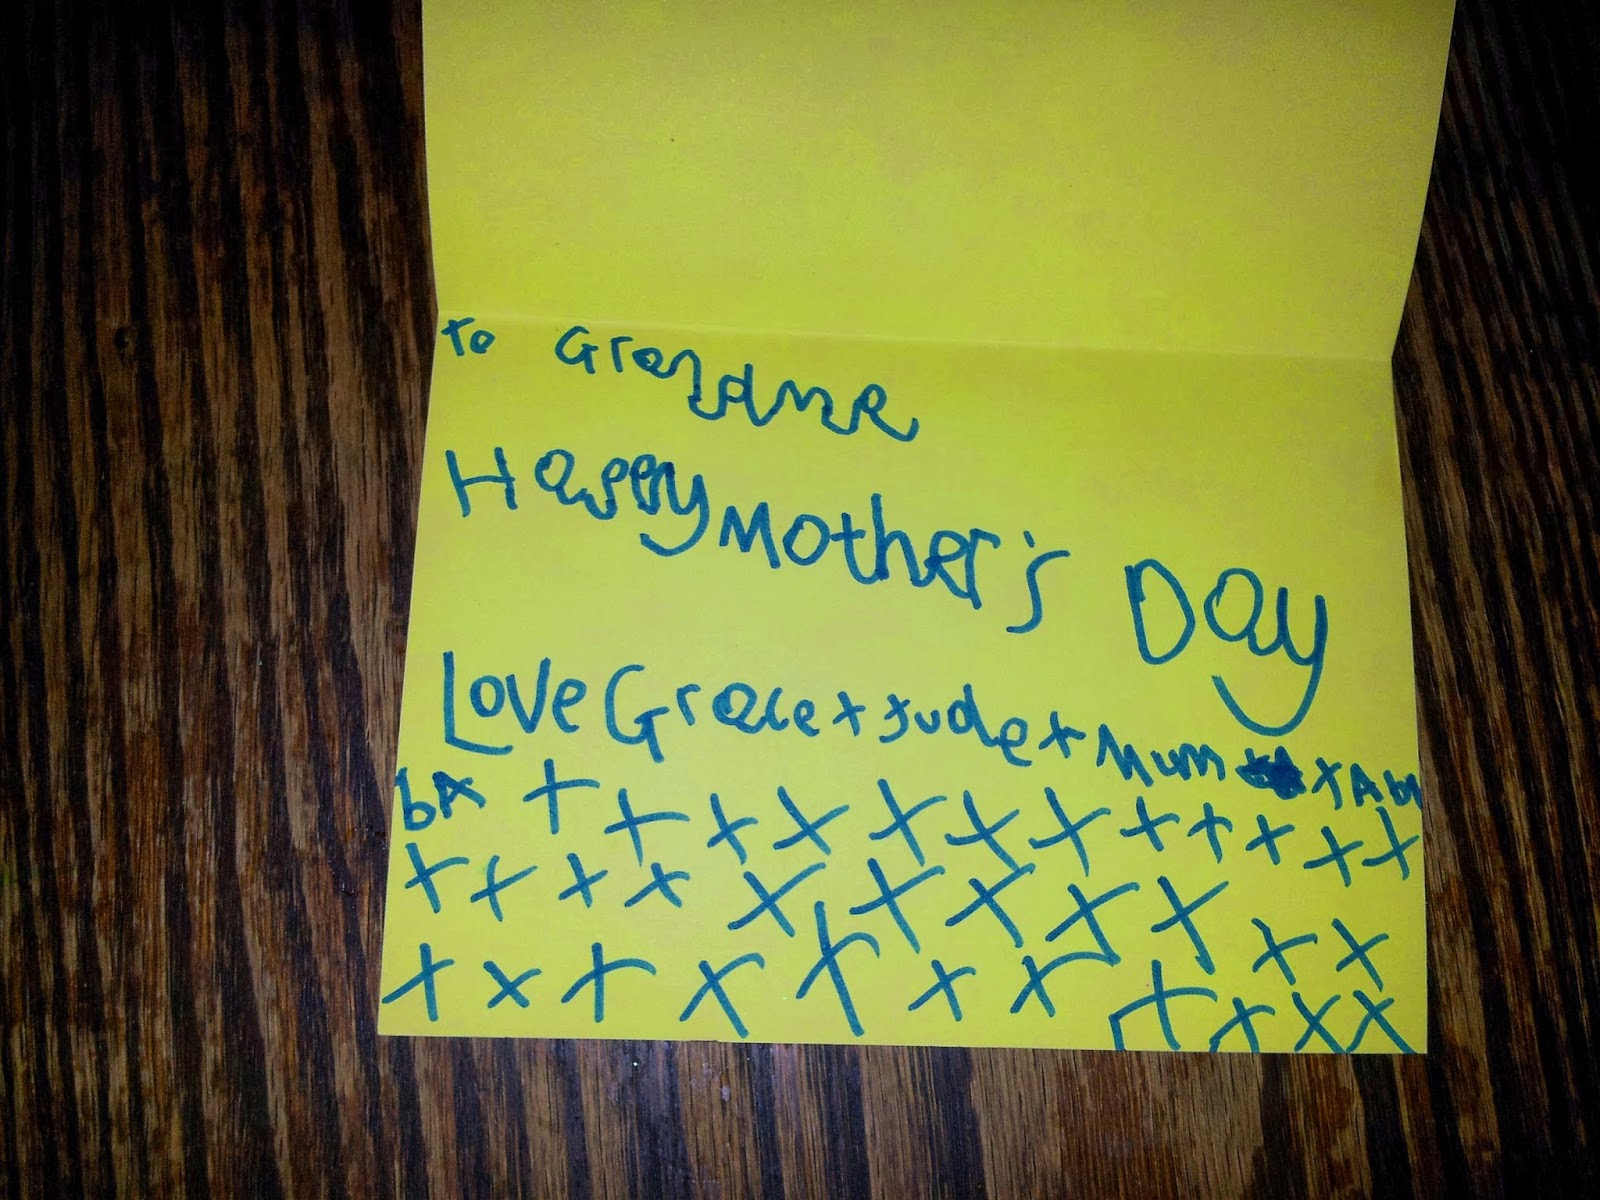 to Grandma
Happy Mother's Day
Love Grace + Jude + Mum + Ab
bA x x x x x x x x x x x x
x x x x x x x x x x x
x x x x x x x x x x x